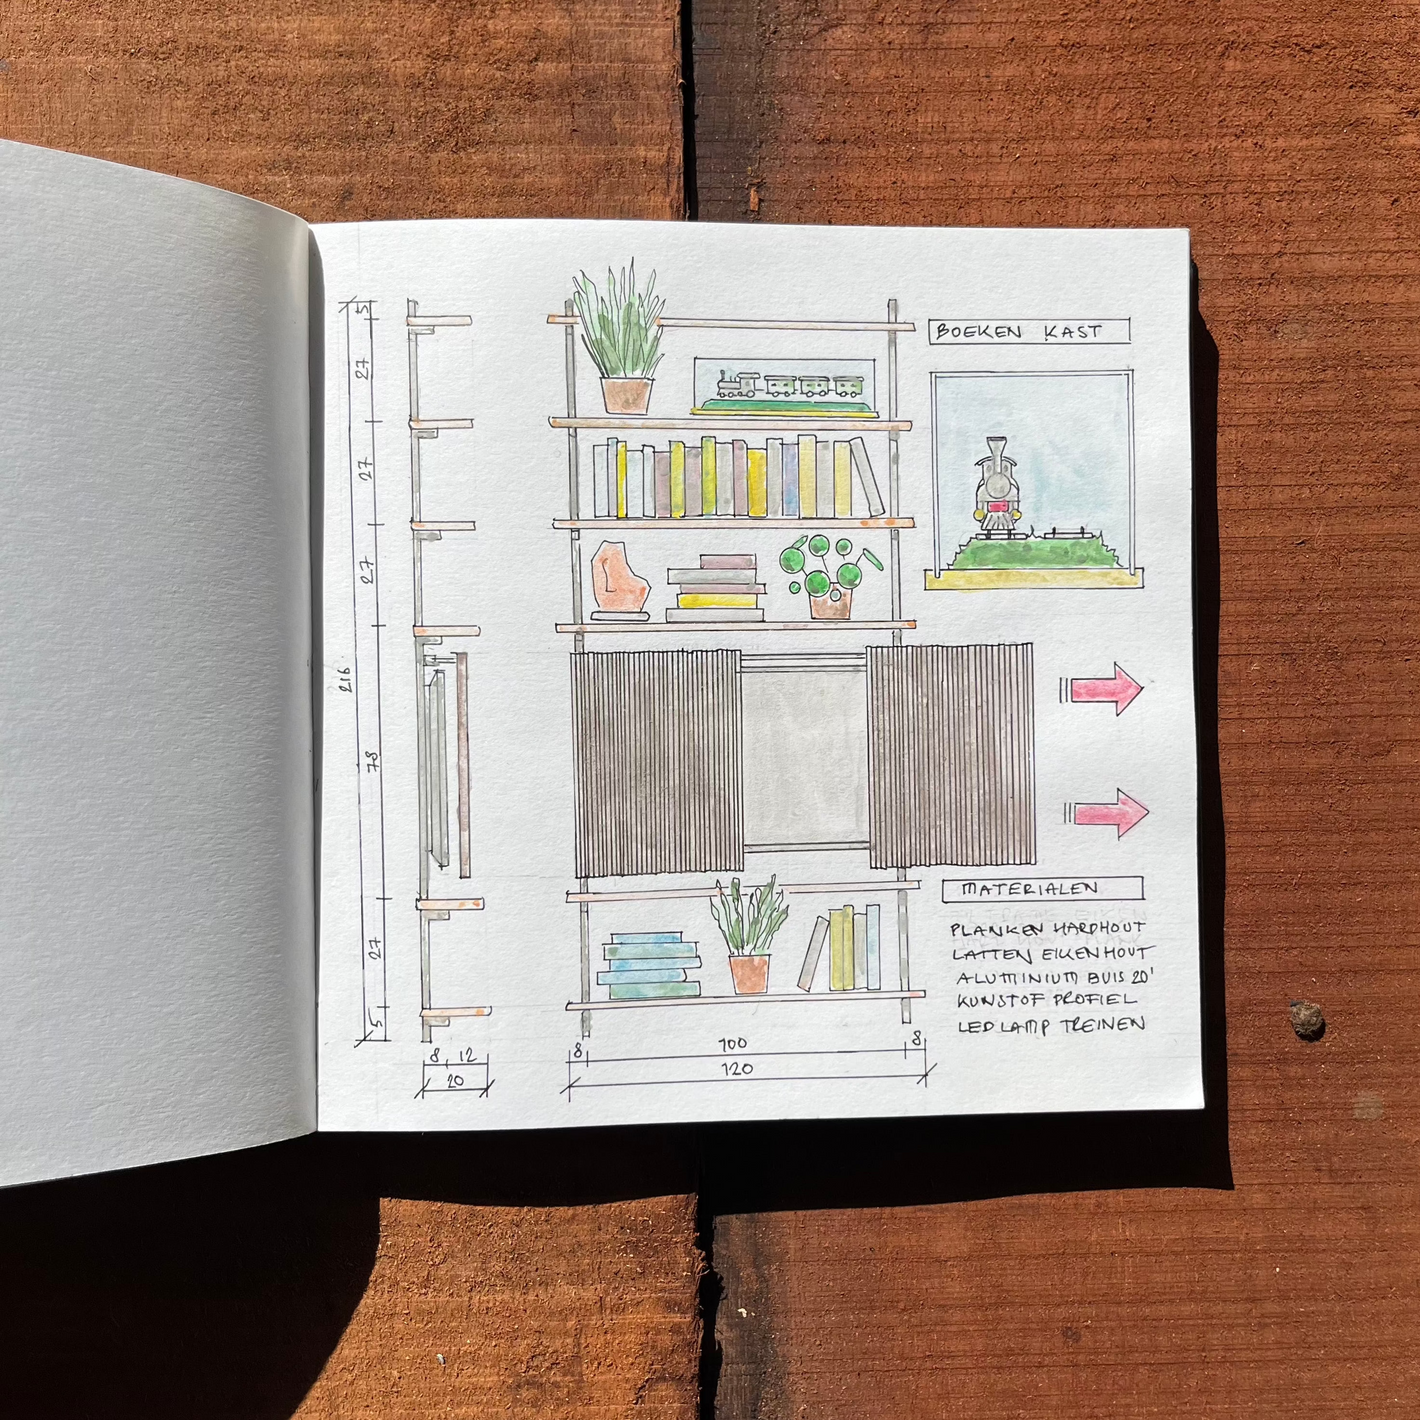 BOEKEN KAST
5
27
27
27
216
78
27
5
8 12
20
8 100 8
120
MATERIALEN
PLANKEN HARDHOUT
LATTEN EIKENHOUT
ALUMINIUM BUIS 20'
KUNSTOF PROFIEL
LEDLAMP TREINEN